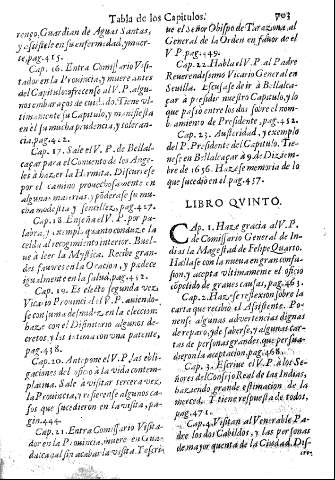 Tabla de los Capitulos. 703
renço, Guardian de Aguas Santas,
y assistele en su enfermedad, y muer-
te, pag. 415.
Cap. 16. Entra Comissario Visi-
tador en la Provincia, y muere antes
del Capitulo: ofrecense al V. P. algu-
nos embaraços de cuidado. Tiene vl-
timamente su Capitulo, y manifiesta
en él su mucha prudencia, y toleran-
cia, pag. 422.
Cap. 17. Sale el V. P. de Bellal-
caçar para el Convento de los Ange-
les à hazer la Hermita. Discurrese
por el camino provechosamente en
algunas materias, y pōderase su mu-
cha modestia, y sencillez, pag. 427.
Cap. 18. Enseña el V. P. por pa-
labra, y exemplo quanto conduce la
celda al recogimiento interior. Buel-
ve à leer la Mystica. Recibe gran-
des favores en la Oracion, y padece
igualmente en la salud, pag. 432.
Cap. 19. Es electo segunda vez
Vicario Provincial el V. P. aviendo-
se con suma desnudez, en la eleccion:
haze con el Difinitorio algunos de-
cretos, y los intima con una patente,
pag. 438.
Cap. 20. Antepone el V. P. las obli-
gaciones del oficio à la vida contem-
plativa. Sale à visitar tercera vez
la Provincia, y refierense algunos ca-
sos que sucedieron en la visita, pa-
gin. 444.
Cap. 21. Entra Comissario Visita-
dor en la Provincia, muere en Gua-
dalcaçal sin acabar la visita. Tescri-
ve el Señor Obispo de Tarazona, al
General de la Orden en favor de el
V. P. pag. 449.
Cap. 22. Habla el V. P. al Padre
Reverendissimo Vicario General en
Sevilla. Escusase de ir à Bellalca-
çar à presidir nuestro Capitulo, y lo
que passò entre los dos sobre el nom-
bramiento de Presidente, pag. 452.
Cap. 23. Austeridad, y exemplo
del P. Presidente del Capitulo. Tie-
nese en Bellalcaçar à 9. de Diziem-
bre de 1656. Hazese memoria de lo
que sucediò en el, pag. 457.
LIBRO QVINTO.
CAp. 1. Haze gracia al V. P.
de Comissario General de In-
dias la Magestad de Felipe Quarto.
Hallase con la nueva en gran confu-
sion, y acepta vltimamente el oficio
cōpelido de graves causas, pag. 463.
Cap. 2. Hazese reflexion sobre la
carta que recibiò el Assistente. Po-
nense algunas advertencias dignas
de reparo, y de saberse, y algunas car-
tas de personas grandes, que persua-
dieron la aceptacion, pag. 468.
Cap. 3. Escrive el V. P. à los Se-
ñores del Consejo Real de las Indias,
haziendo grande estimacion de la
merced. Tiene respuesta de todos,
pag. 471.
Cap. 4. Visitan al Venerable Pa-
dre los dos Cabildos, y las personas
de mayor quenta de la Ciudad. Dis-